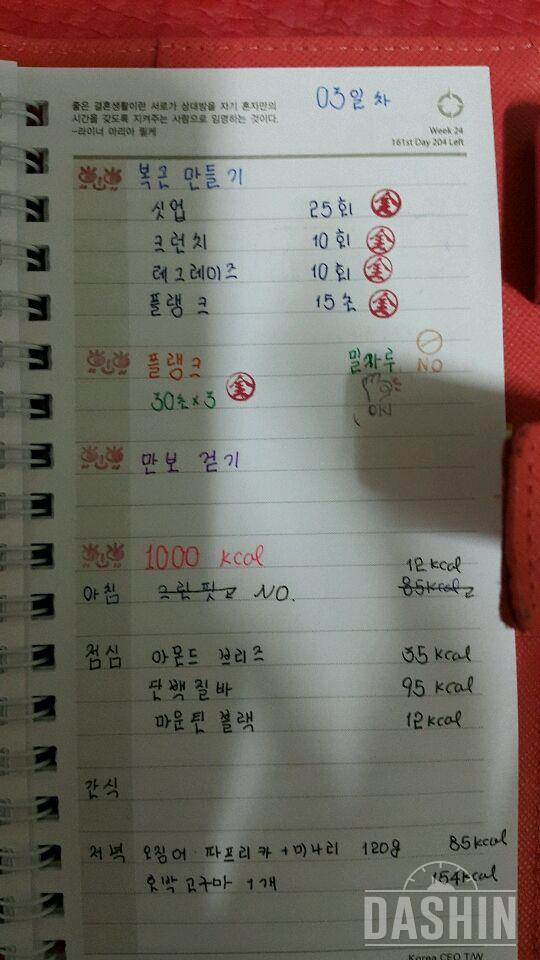 좋은 결혼생활이란 서로가 상대방을 자기 혼자만의
시간을 갖도록 지켜주는 사람으로 임명하는 것이다.
-라이너 마리아 릴케
03일차
Week 24
161st Day 204 Left
복근 만들기
싯업 25회 金
크런치 10회 金
레그레이즈 10회 金
플랭크 15초 金
플랭크 밀가루 NO
30초×3 金
만보 걷기
1000 kcal
12kcal
아침 그린핏 NO. 85kcal
점심 아몬드 브리즈 35kcal
단백질바 95kcal
마운틴 블랙 12kcal
간식
저녁 오징어·파프리카+미나리 120g 85kcal
호박고구마 1개 154kcal
DASHIN
Korea CEO T/W